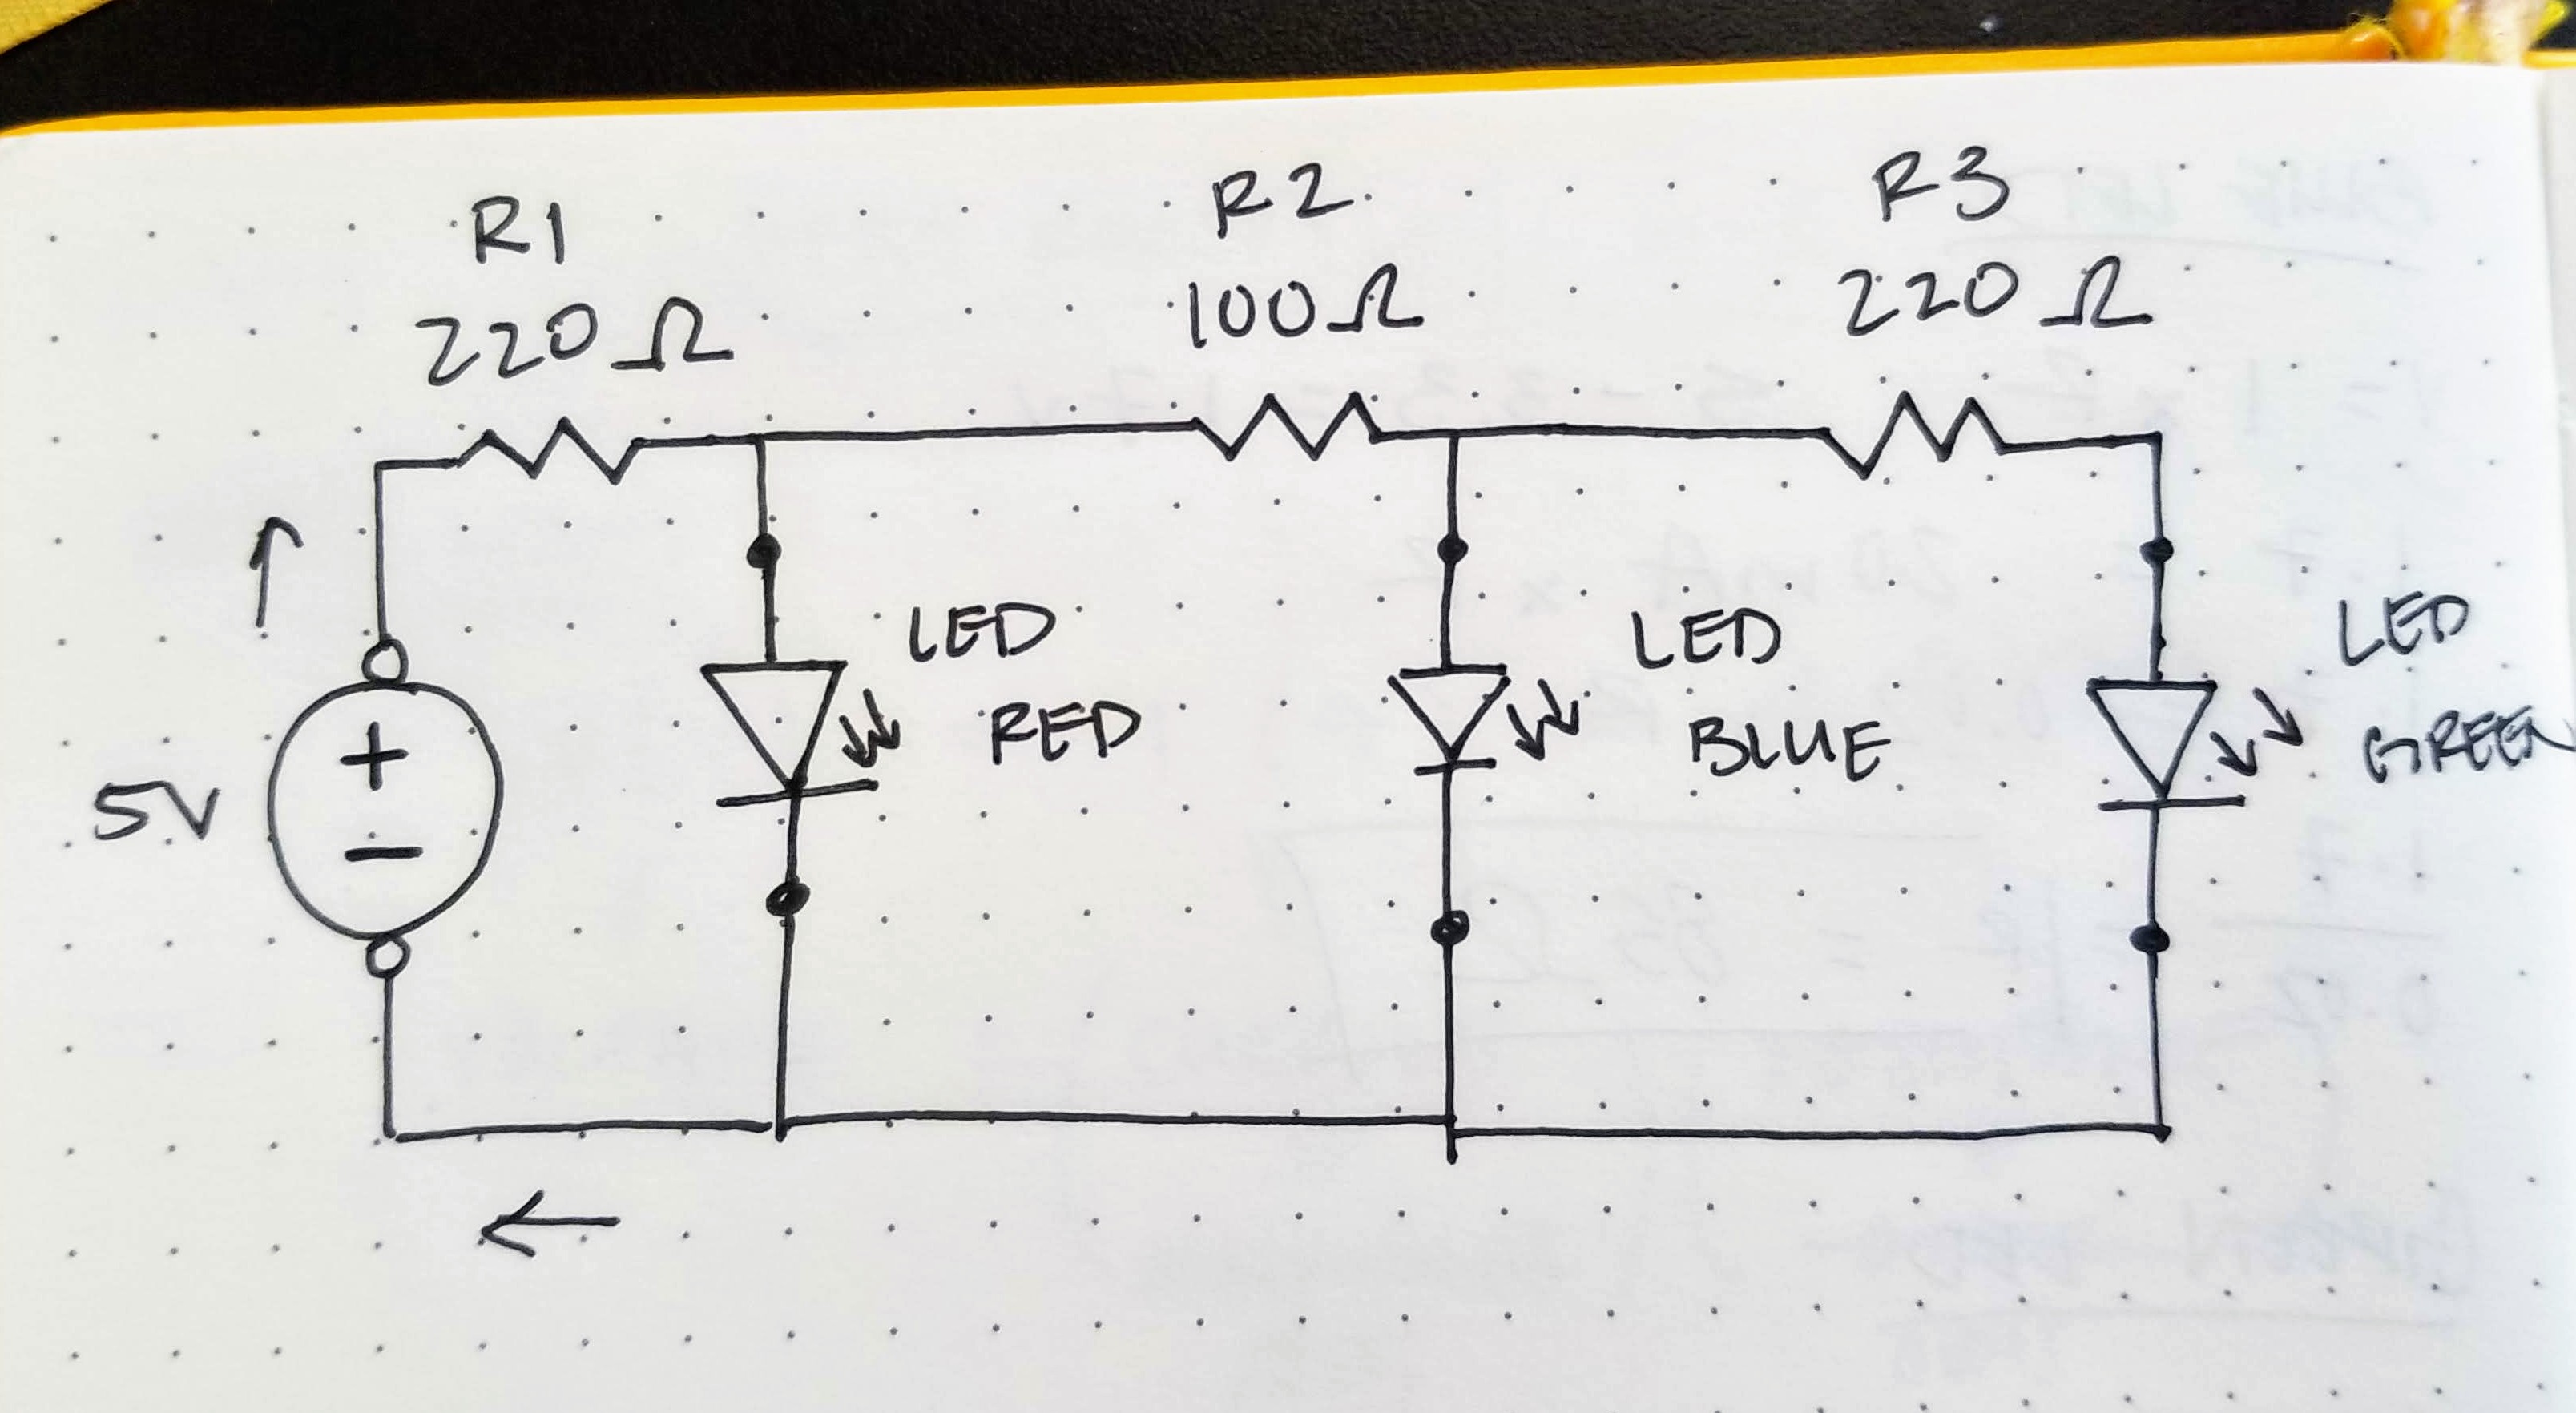 R1
220 Ω
R2
100 Ω
R3
220 Ω
5V
+
−
LED
RED
LED
BLUE
LED
GREEN